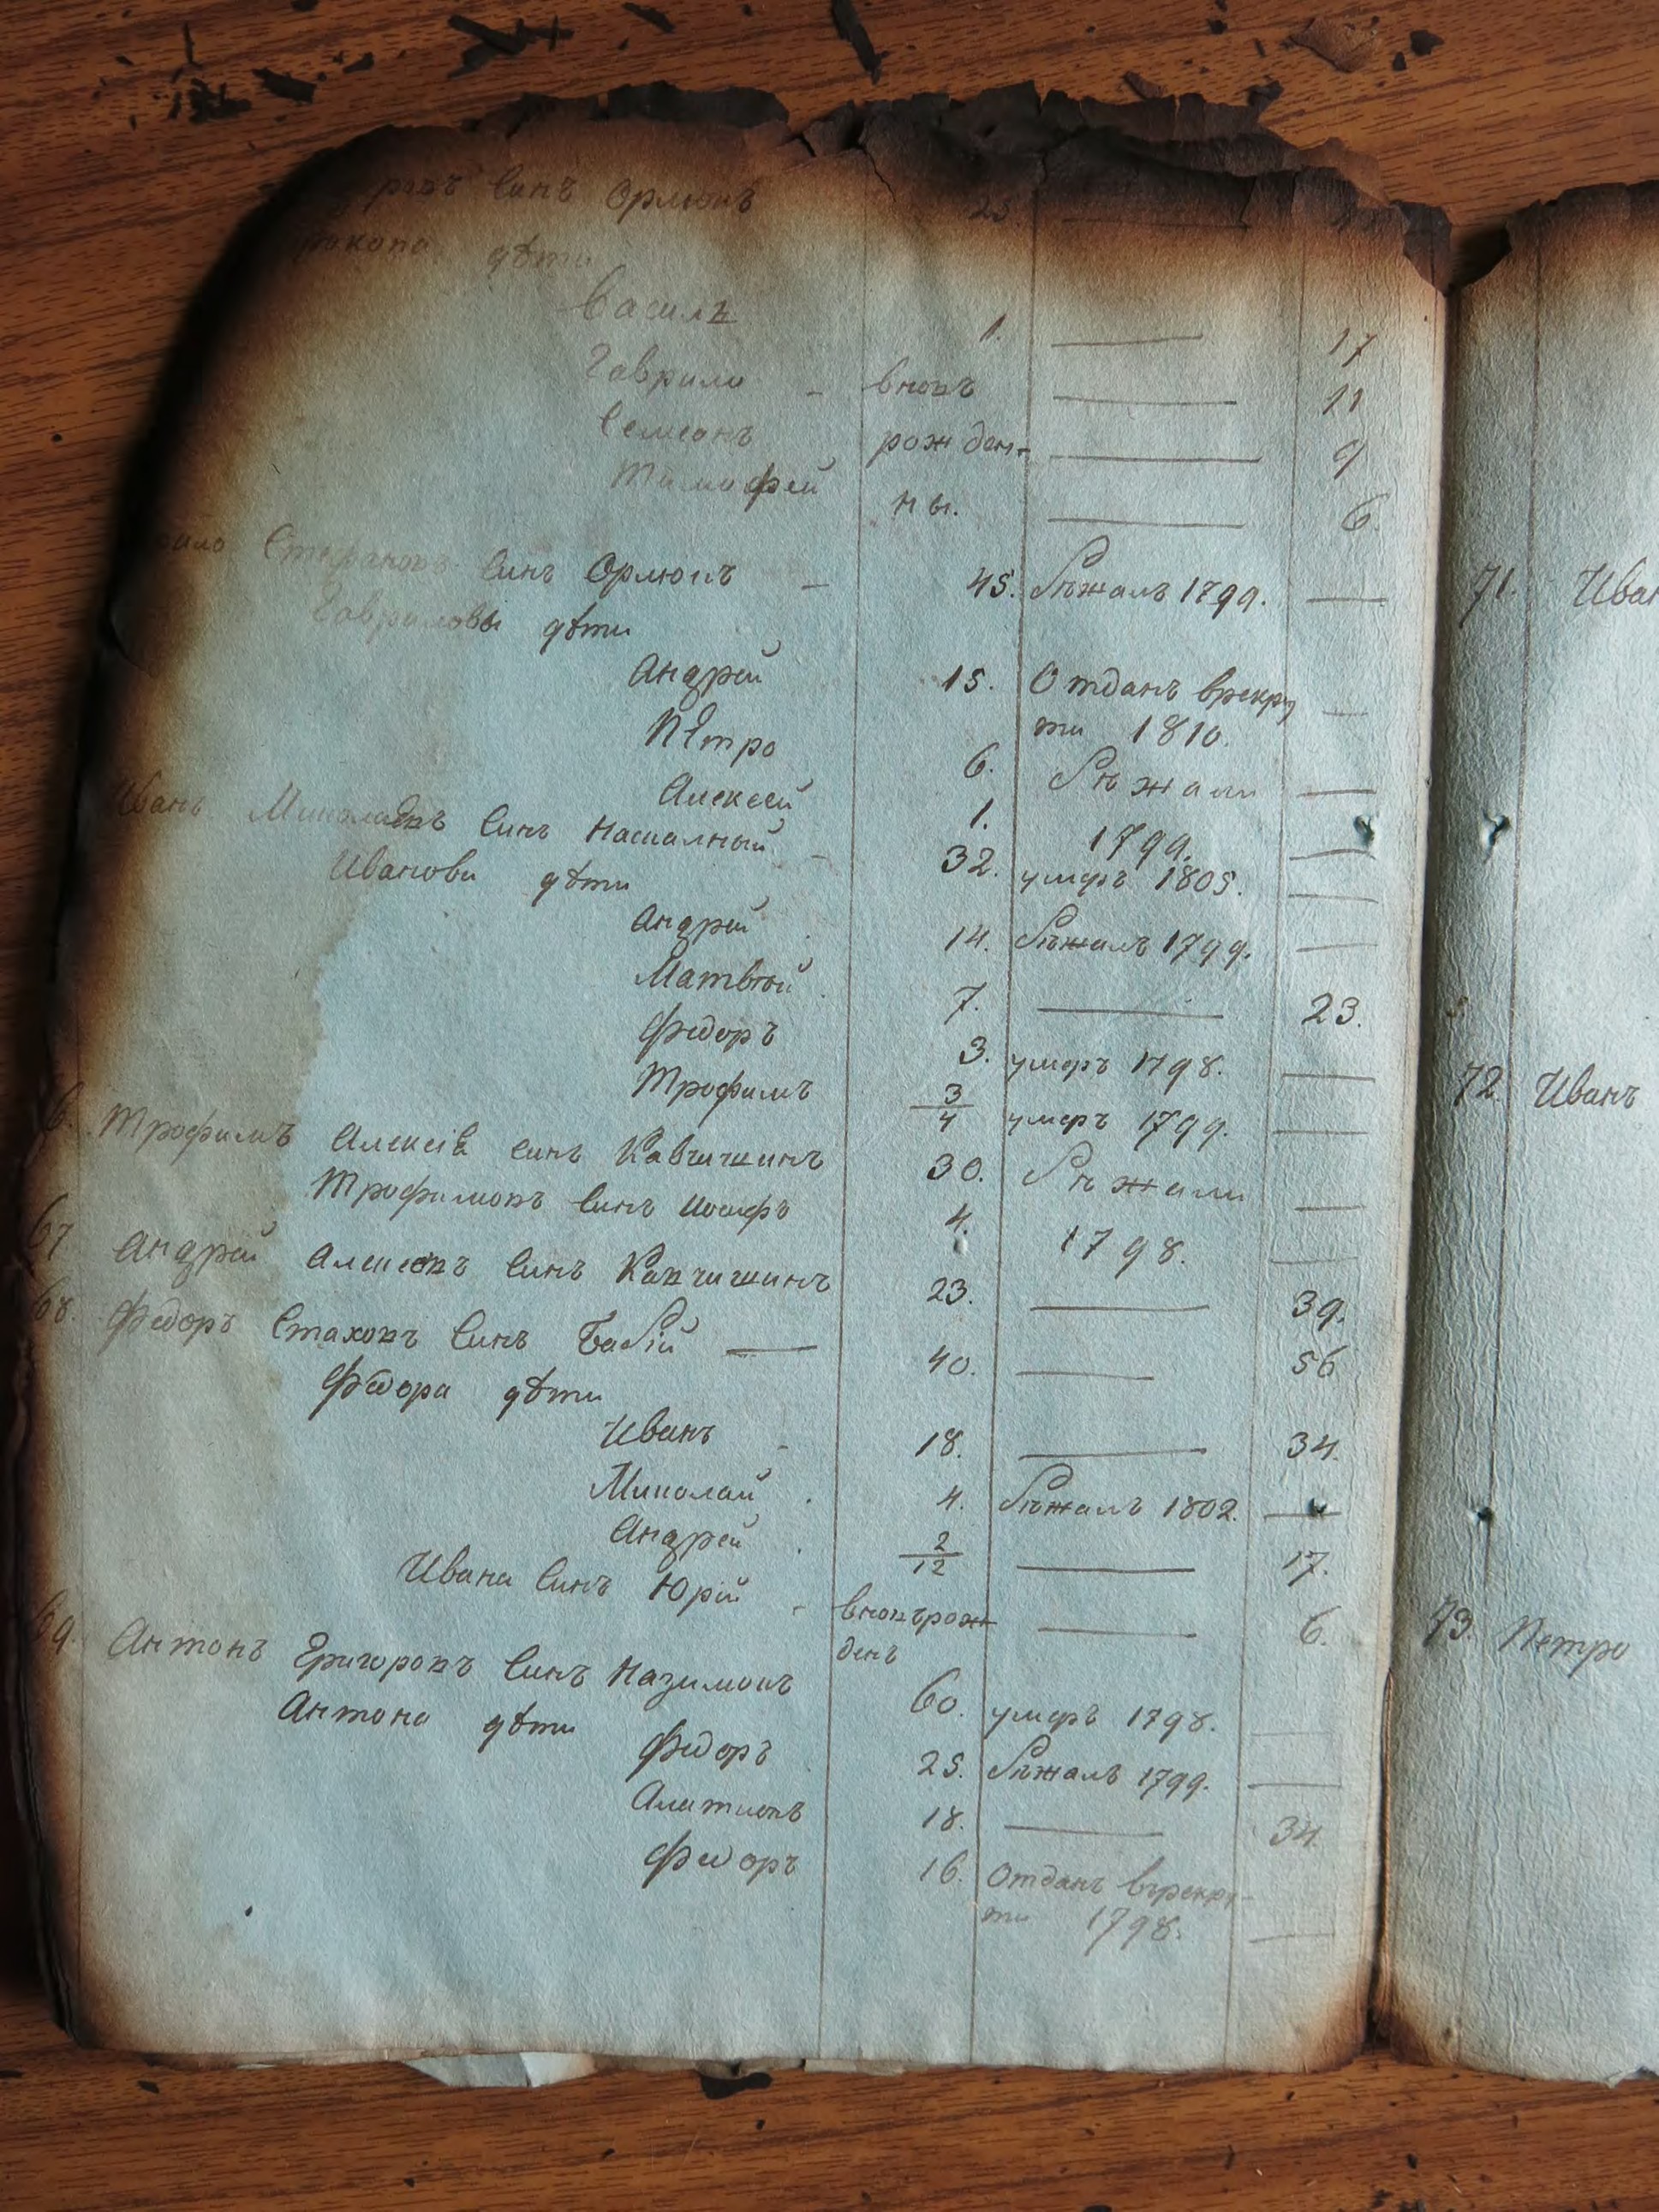 Синъ Орлюкъ 23
дѣти
Василь 1. 17
Гаврило внокъ 11
Семеонъ рожден- 9
Тимофей ны. 6.
Синъ Орлюкъ 45. Бѣжалъ 1799.
Гавриловы дѣти
Андрей 15. Отданъ врекру
ти 1810.
Петро 6. Бѣжали
Алексей 1. 1799.
Иванъ Миколаевъ Синъ 32. умеръ 1805.
Иванови дѣти
Андрей 14. Бѣжалъ 1799.
Матвѣй 7. 23.
Федоръ 3. умеръ 1798.
Трофимъ 3/4 умеръ 1799.
6. Трофимъ Алексѣв синъ Кавчишинъ 30. Бѣжали
Трофимовъ Синъ Иосифъ 4. 1798.
67 Андрей Алексеевъ Синъ Кавчишинъ 23. 39.
68. Федоръ Стаховъ Синъ Бабій 40. 56
Федора дѣти
Иванъ 18. 34.
Миколай 4. Бѣжалъ 1802.
Андрей 2/12 17.
Ивана Синъ Юрій внокърож 6.
денъ
69. Антонъ Григоровъ Синъ Назимокъ 60. умеръ 1798.
Антона дѣти
Федоръ 25. Бѣжалъ 1799.
18. 34.
Федоръ 16. Отданъ врекру-
ти 1798.
71. Иван
72. Иванъ
73. Петро